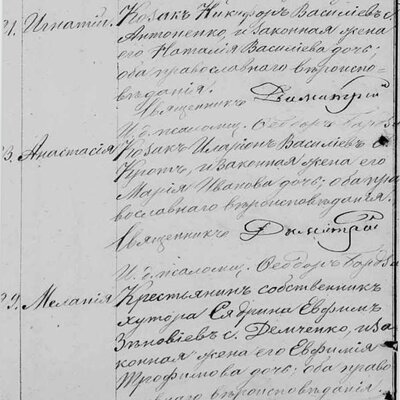 21. Игнатій. Козакъ Никифоръ Василіевъ с.
Антоненко, и законная жена
его Наталія Василіева дочь;
оба православнаго вѣроиспо-
вѣданія.
Священникъ Димитрій
И. д. псаломщ. Ѳеодоръ
23. Анастасія Козакъ Иларіонъ Василіевъ с.
Кротъ, и законная жена его
Марія Иванова дочь; оба пра
вославнаго вѣроисповѣданія.
Священникъ Димитрій
И. д. псаломщ. Ѳеодоръ
29. Меланія Крестьянинъ собственникъ
хутора Евфимъ
Зѣновіевъ с. Демченко, и за
конная жена его Евфимія
Трофимова дочь; оба право
наго вѣроисповѣданія.